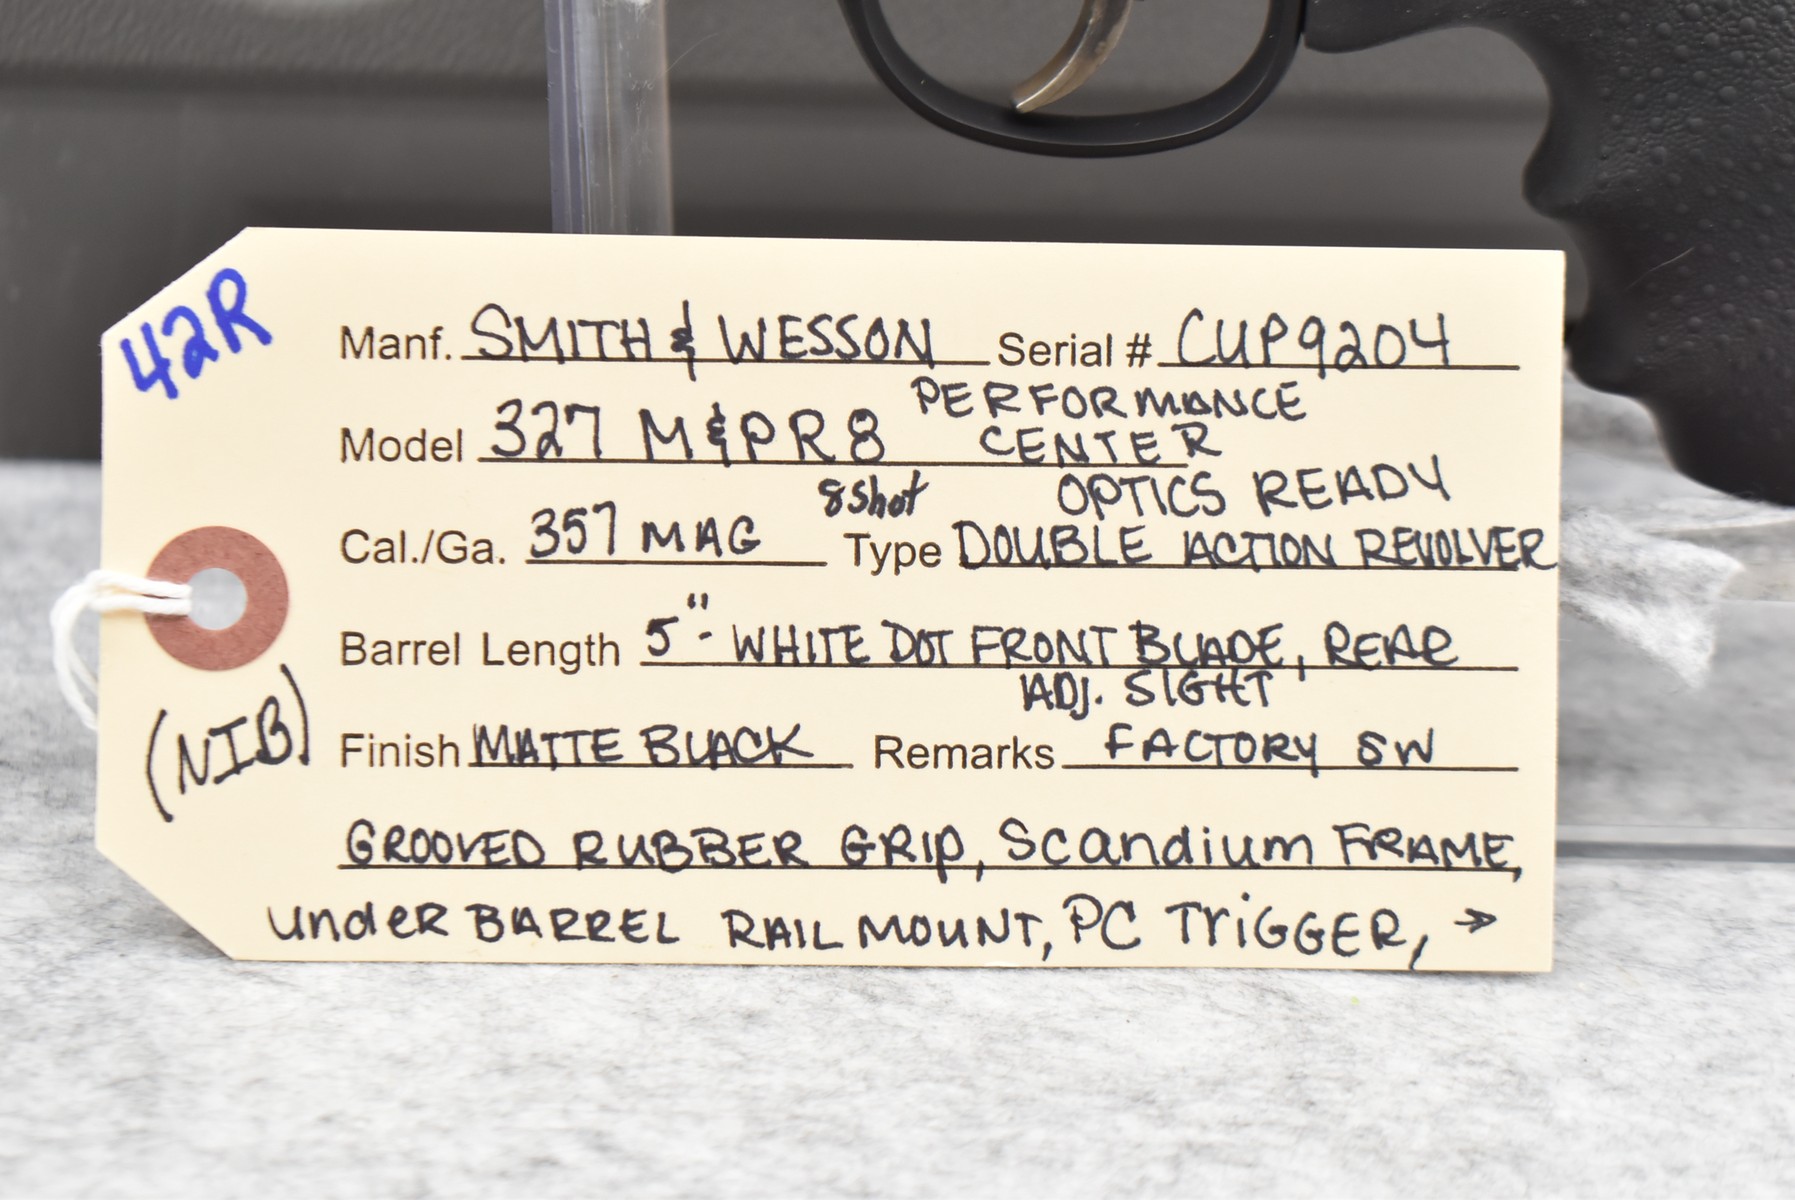 42R
Manf. SMITH & WESSON Serial # CUP9204
Model 327 M&PR8 PERFORMANCE
CENTER
8 shot OPTICS READY
Cal./Ga. 357 MAG Type DOUBLE ACTION REVOLVER
Barrel Length 5"- WHITE DOT FRONT BLADE, REAR
ADJ. SIGHT
(NIB)
Finish MATTE BLACK Remarks FACTORY SW
GROOVED RUBBER GRIP, Scandium FRAME,
under BARREL RAIL MOUNT, PC TRiGGER, →